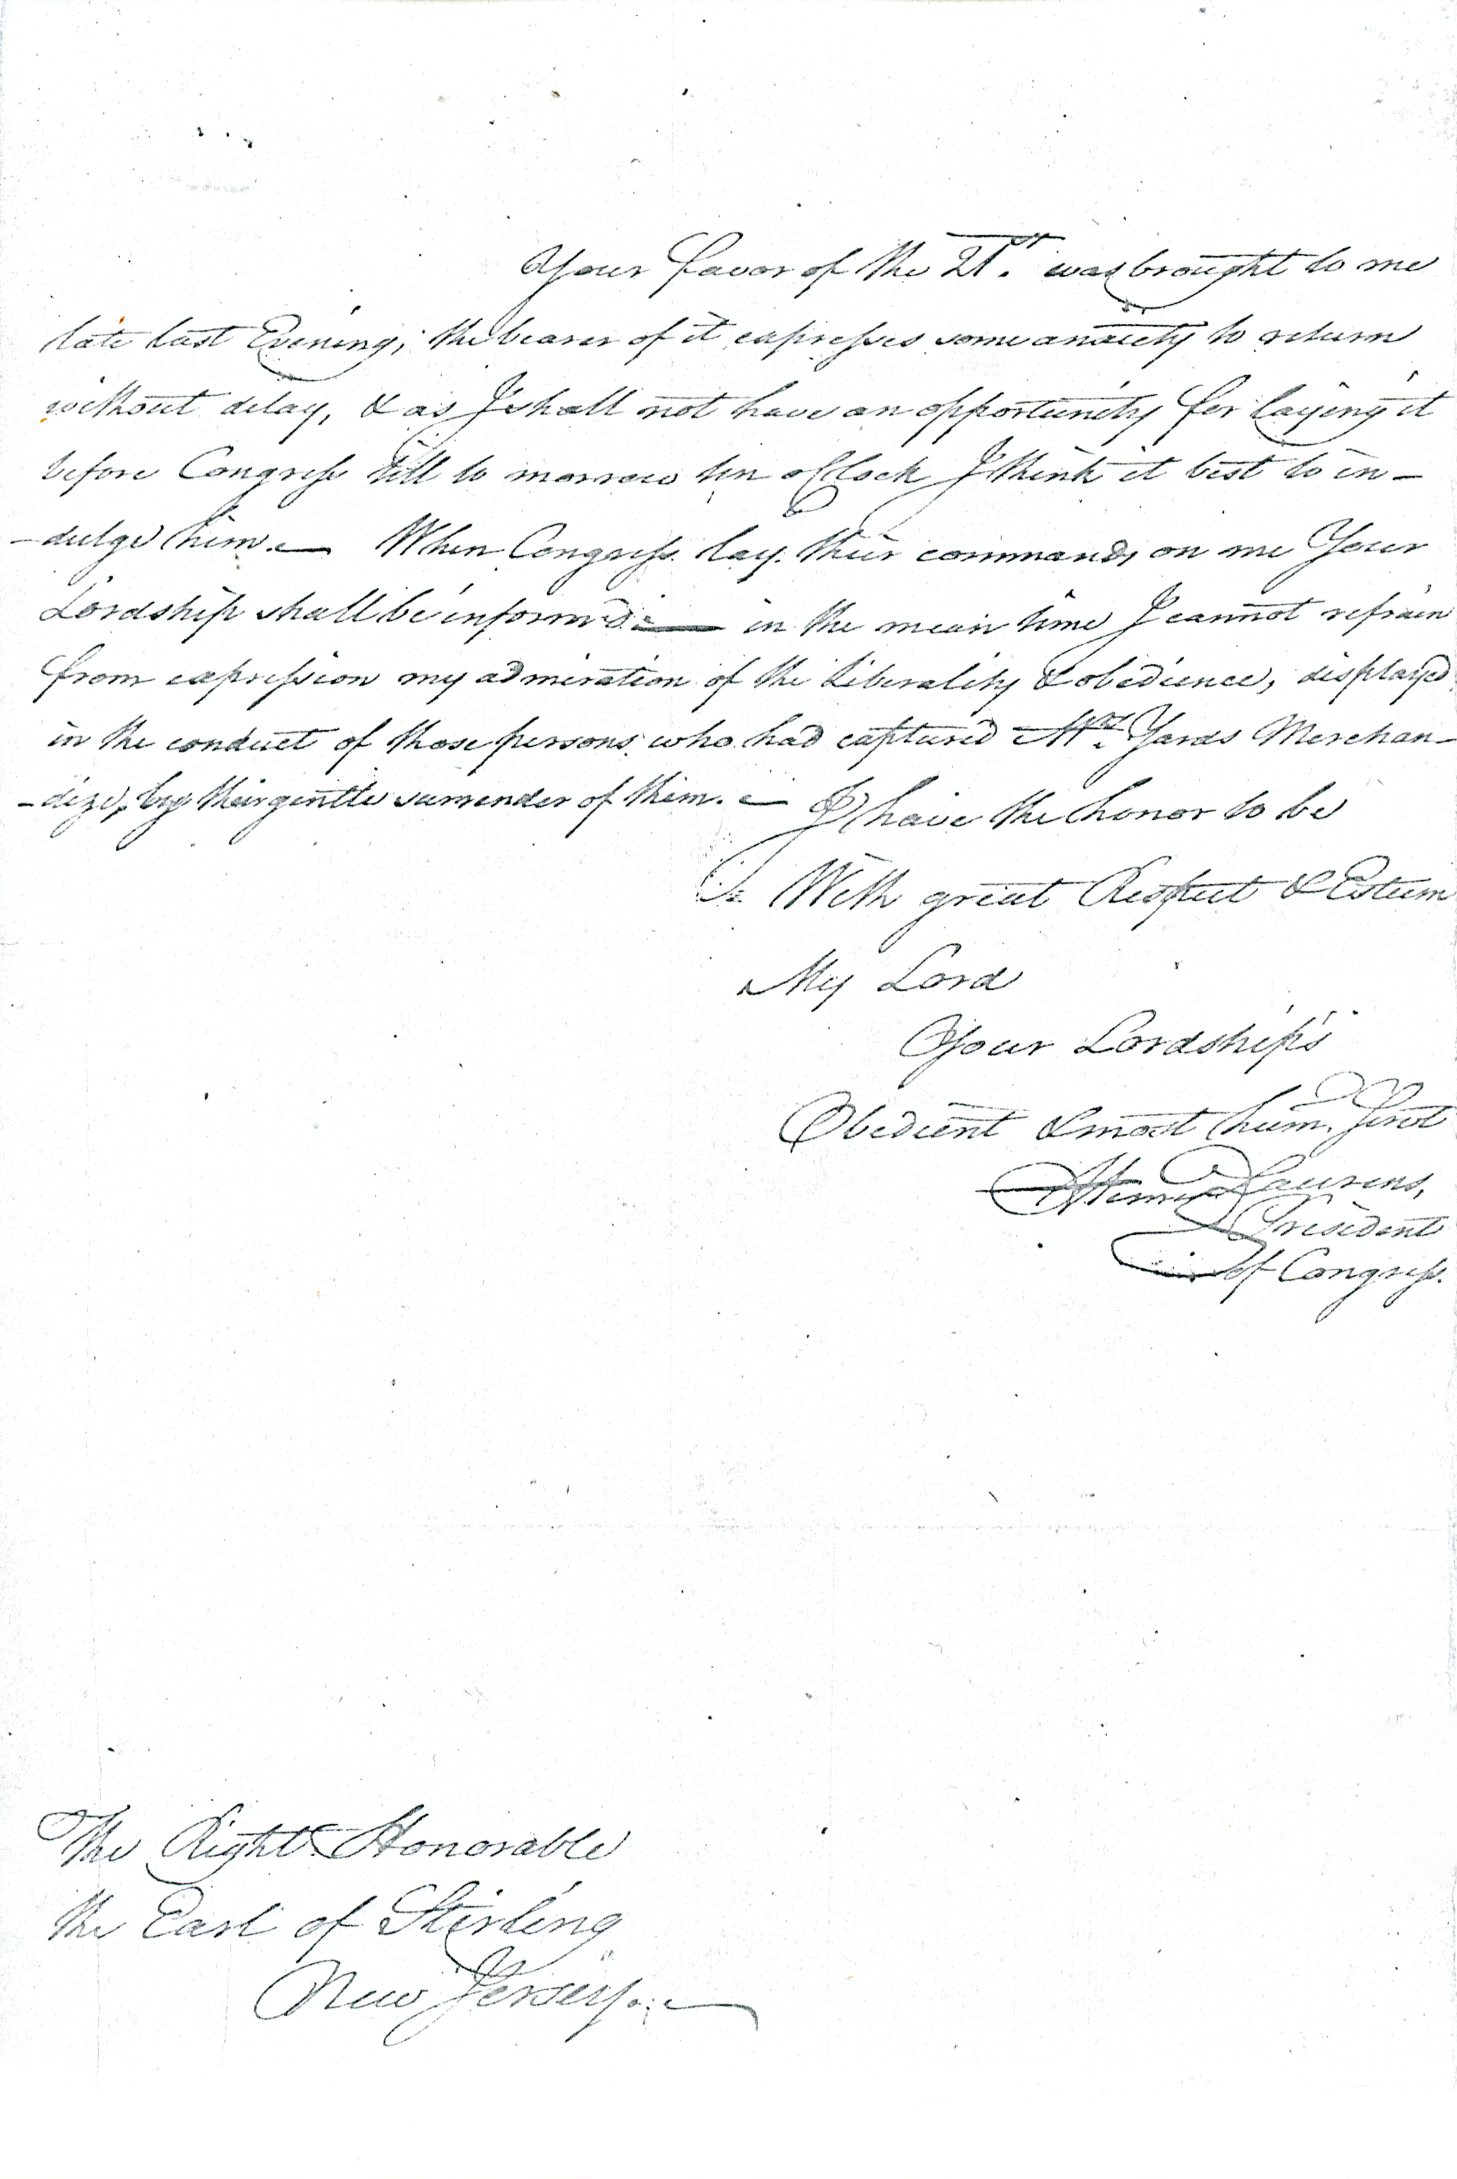 Your favor of the 21st. was brought to me
late last Evening; the bearer of it expresses some anxiety to return
without delay, & as I shall not have an opportunity for laying it
before Congress till to morrow ten oClock I think it best to in-
-dulge him.— When Congress lay their commands on me Your
Lordship shall be inform'd:— in the mean time I cannot refrain
from expression my admiration of the Liberality & obedience, displayed
in the conduct of those persons who had captured Mrs. Yards Merchan-
-dize, by their gentle surrender of them.— I have the honor to be
With great Respect & Esteem
My Lord
Your Lordship's
Obedient & most hum. Servt
Henry Laurens,
President
of Congress.
The Right Honorable
the Earl of Stirling
New Jersey.—